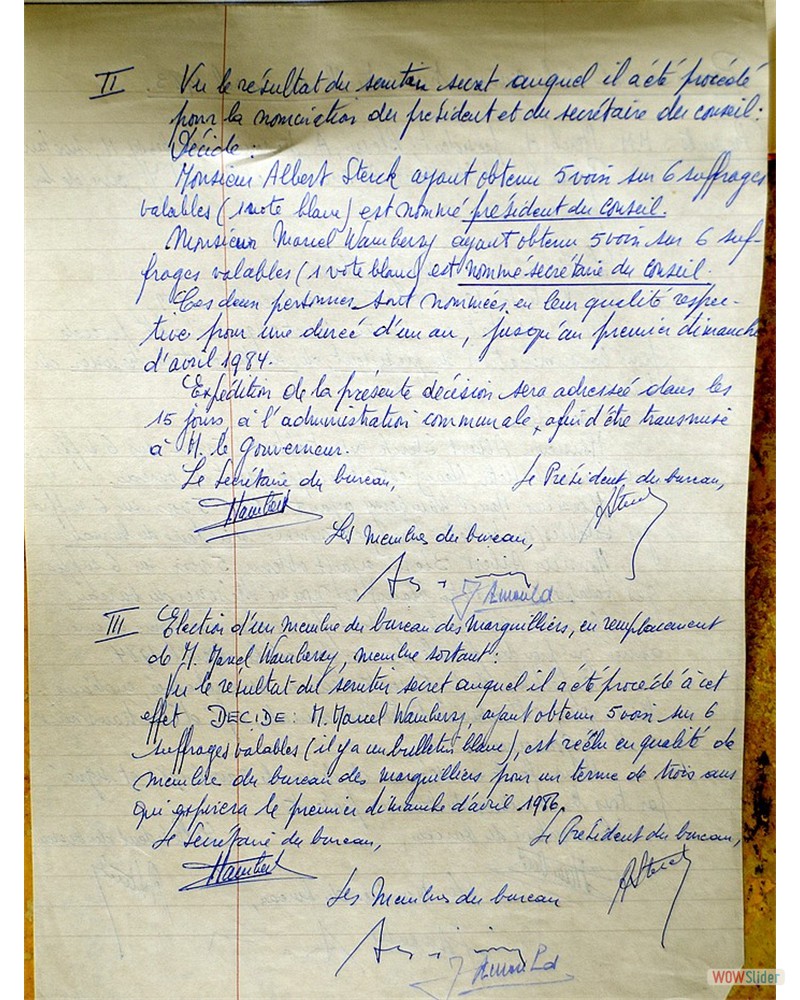 II. Vu le résultat du scrutin secret auquel il a été procédé
pour la nomination du président et du secrétaire du conseil :
Décide :
Monsieur Albert Sterck ayant obtenu 5 voix sur 6 suffrages
valables (1 vote blanc) est nommé président du Conseil.
Monsieur Marcel Wambersy ayant obtenu 5 voix sur 6 suf-
frages valables (1 vote blanc) est nommé secrétaire du Conseil.
Ces deux personnes sont nommées en leur qualité respec-
tive pour une durée d'un an, jusqu'au premier dimanche
d'avril 1984.
Expédition de la présente décision sera adressée dans les
15 jours, à l'administration communale, afin d'être transmise
à M. le Gouverneur.
Le Secrétaire du bureau, Le Président du bureau,
Les Membres du bureau,
J Arnould
III Election d'un membre du bureau des marguilliers, en remplacement
de M. Marcel Wambersy, membre sortant :
Vu le résultat du scrutin secret auquel il a été procédé à cet
effet DECIDE : M. Marcel Wambersy, ayant obtenu 5 voix sur 6
suffrages valables (il y a un bulletin blanc), est réélu en qualité de
membre du bureau des marguilliers pour un terme de trois ans
qui expirera le premier dimanche d'avril 1986.
Le Secrétaire du bureau, Le Président du bureau,
Les Membres du bureau
J Arnould
WOWSlider